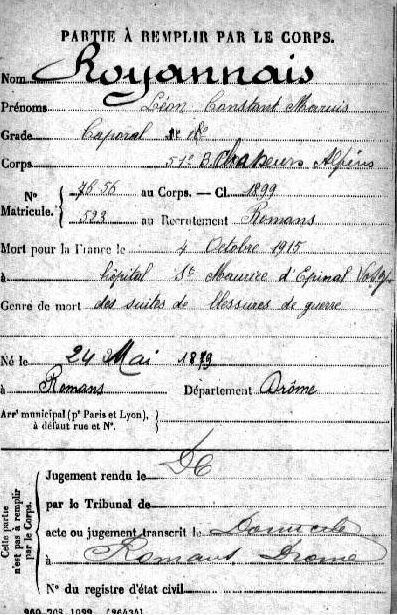 PARTIE À REMPLIR PAR LE CORPS.
Nom Royannais
Prénoms Léon Constant Marius
Grade Caporal
Corps 51e B Chasseurs Alpins
N° Matricule. { 4656 au Corps. — Cl. 1899
523 au Recrutement Romans
Mort pour la France le 4 Octobre 1915
à hôpital St Maurice d'Epinal Vosges
Genre de mort des suites de blessures de guerre
Né le 24 Mai 1879
à Romans Département Drôme
Arrt municipal (pr Paris et Lyon), à défaut rue et N°.
Cette partie n'est pas à remplir par le Corps.
Jugement rendu le DC
par le Tribunal de
acte ou jugement transcrit le Domicile
à Romans Drome
N° du registre d'état civil